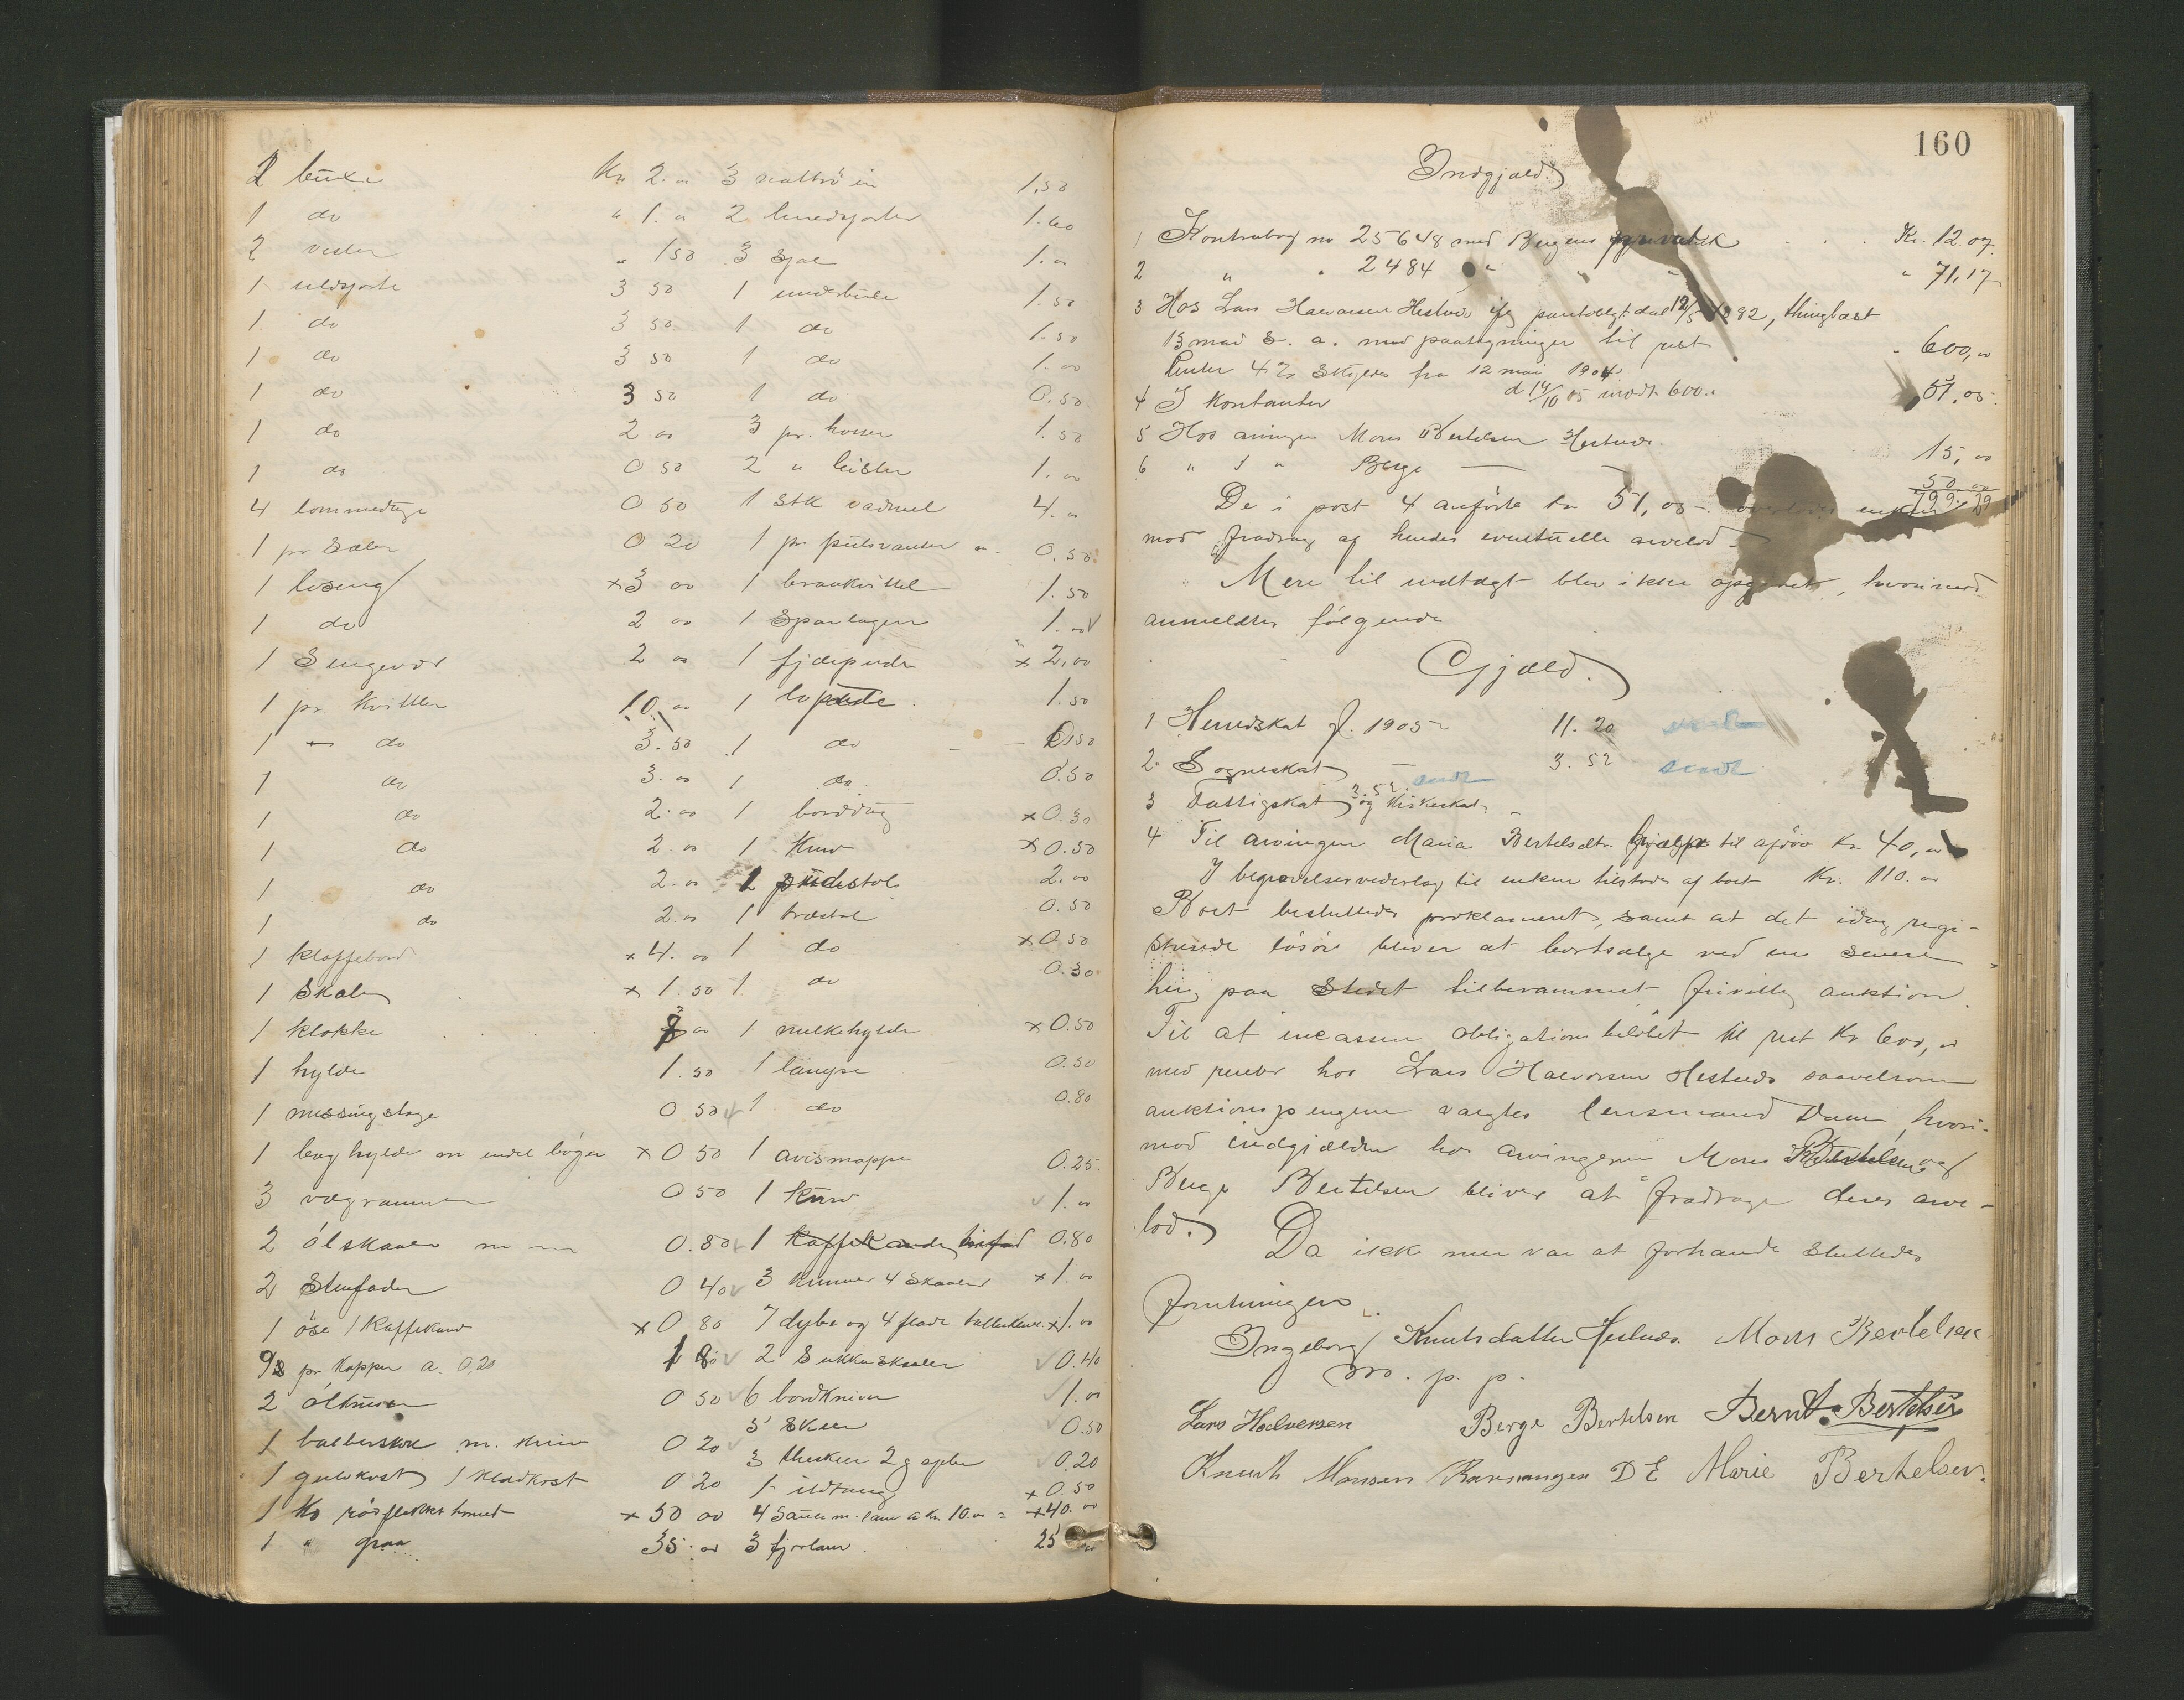 2 buxe Kr 2.00 3 nattröier 1.50
1 do " 1.00 2 linedsjorter 1.60
2 vester " 1 50 3 Sjal 1.00
1 uldsjorte 3 50 1 underbuxe 1.50
1 do 3 50 1 do 1.50
1 do 3 50 1 do 1.00
1 do 3 50 1 do 0.50
1 do 2 00 3 pr. hoser 1.50
1 do 0 50 2 " leister 1.00
4 lommeduge 0 50 1 stk vadmel 4.00
1 pr Saler 0 20 1 pr pulsvanter 0.50
1 loseng ×3 00 1 1.50
1 do 2 00 1 Sparlagen 1.00
1 Sengevær 2 00 1 fjærpude × 2,00
1 pr. Kvitler 10.00 1 lopude 1.50
1 do 3.50 1 do 0,50
1 do 3.00 1 do 0.50
1 do 2.00 1 borddug ×0.30
1 do 2.00 1 Kurv ×0.50
1 do 2.00 1 pudestol 2.00
1 do 2.00 1 træstol 0.50
1 klaffebord ×4.00 1 do ×0.50
1 Skab × 1.50 1 do 0.30
1 klokke 00 1 melkehylde ×0.50
1 hylde 1.50 1 lampe 0.50
1 messingstage 0 50 1 do 0.80
1 boghylde m endel böger ×0 50 1 avismappe 0.25
3 vægrammer 0 50 1 Kurv 1.00
2 ölskaaler 0.80 1 Kaffekande 0.80
2 Stenfader 0 40 3 Kummer 4 Skaaler ×1.00
1 öse 1 Kaffekand ×0 80 7 dybe og 4 flade tallerkener ×1.00
9 pr Kopper a. 0,20 1 80 2 Sukkerskaaler 0.40
2 ölkruser 0 50 6 bordkniver 1.00
5 Skeer 0.50
1 balberskrin m. kniv 0 20 3 theskeer 2 gafler 0.20
1 gulvkost 1 Kladkost 0 20 1 ildtang ×0.50
1 Ko rödflekket hornet ×50 00 4 Sauer m. lam a kr 10.00 = ×40.00
1 " graa 35.00 3 fjorlam 25
160
Indgjæld.
1 Kontrabog no 25648 med Bergens privatbk Kr. 12.07
2 " " 2484 " " " " 71,17
3 Hos Lars Halvorsen Hestvedt ifg pantobligt. dat 12/5 1882, thinglæst
13 mai s. a. med paategninger til rest " 600,00
Renter 4 % skyldes fra 12 mai 1904
4 I kontanter d 14/10 05 modt. 600.00 51,05
5 Hos arvingen Mons Bertelsen Hestvedt. 15,00
6 " " Berge — 50 00
799.29
De i post 4 anförte kr 51,05 overlodes enken
mod fradrag af hendes eventuelle arvelod.
Mere til indtægt blev ikke opgivet, hvorimod
anmeldtes fölgende
Gjæld.
1 Herredskat f. 1905 11.20
2. Sogneskat — 3.52 sendt
3 Fattigskat og Kirkeskat 3.52 sendt
4 Til arvingen Maria Bertelsdtr. hjælp til Kr. 40,00
I begravelsesvederlag til enken tilstodes af boet Kr. 110.00
Boet besluttedes proklameret, samt at det idag regi-
strerede lösöre bliver at bortsælge ved en senere
her paa Stedet tilberammet frivillig auktion.
Til at incassere obligationsbelöbet til rest Kr 600,00
med renter hos Lars Halvorsen Hestvedt saavelsom
auktionspengene valgtes lensmand Daae, hvori-
mod indgjælden hos arvingerne Mons Bertelsen og
Berge Bertelsen bliver at fradrage deres arve-
lod. Da ikke mer var at forhandle sluttedes
forretningen.
Ingeborg Knutsdatter Hestvedt. Mons Bertelsen
m. p. p.
Lars Halvorsen Berge Bertelsen Bernt Bertelsen
Knuth Monsen D E Marie Bertelsen.